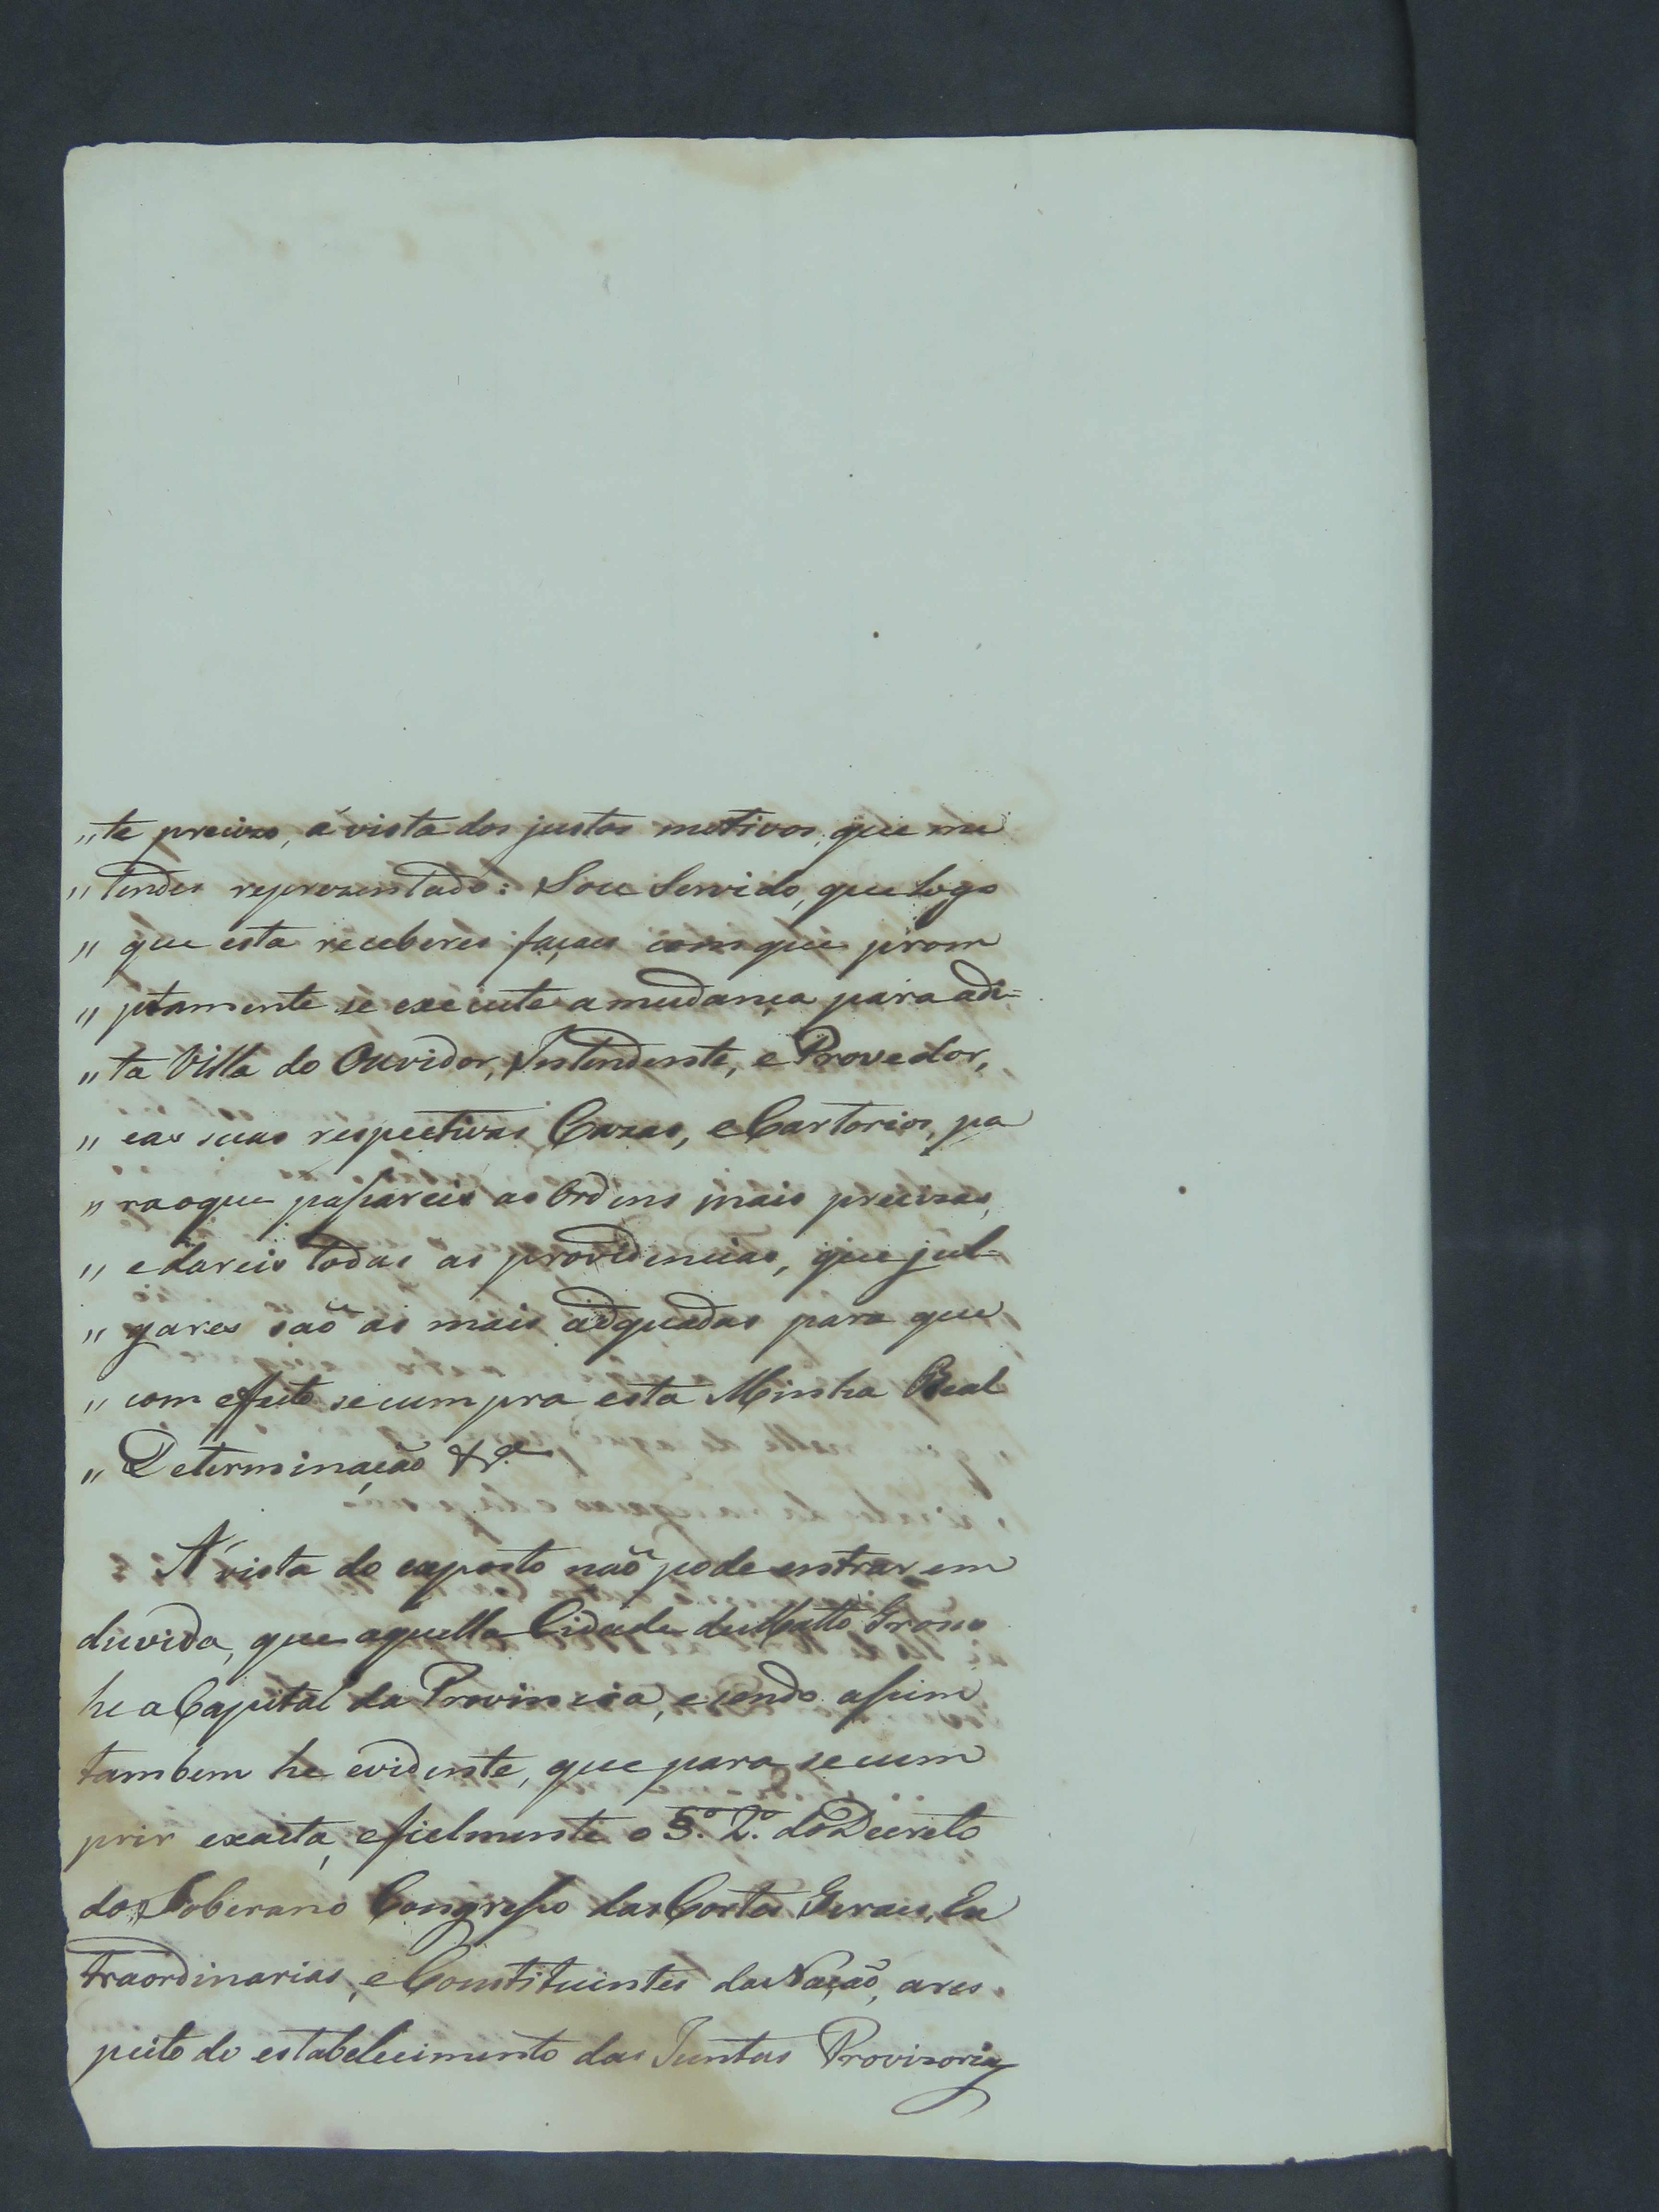 „ te precizo, á vista dos justos motivos, que me
„ tendes reprezentado: Sou Servido, que logo
„ que esta receberes façaes com que prom
„ ptamente se execute a mudança para adi=
„ ta Villa do Ouvidor, Intendente, e Provedor,
„ eas suas respectivas Cazas, e Cartorios, pa
„ raoque passareis as Ordens mais precizas,
„ e dareis todas as providencias, que jul-
„ gares saõ as mais adquadas para que
„ com effeito se cumpra esta Minha Real
„ Determinaçaõ &ª
Á vista do exposto naõ pode entrar em
duvida, que aquella Cidade de Matto Grosso
he a Capital da Provincia, e sendo assim
tambem he evidente, que para se cum
prir exacta, e fielmente o §.º 2.º do Decreto
do Soberano Congresso das Cortes Geraes, Ex
traordinarias, e Constituintes da Naçaõ, ares
peito do estabelecimento das Juntas Provizorias